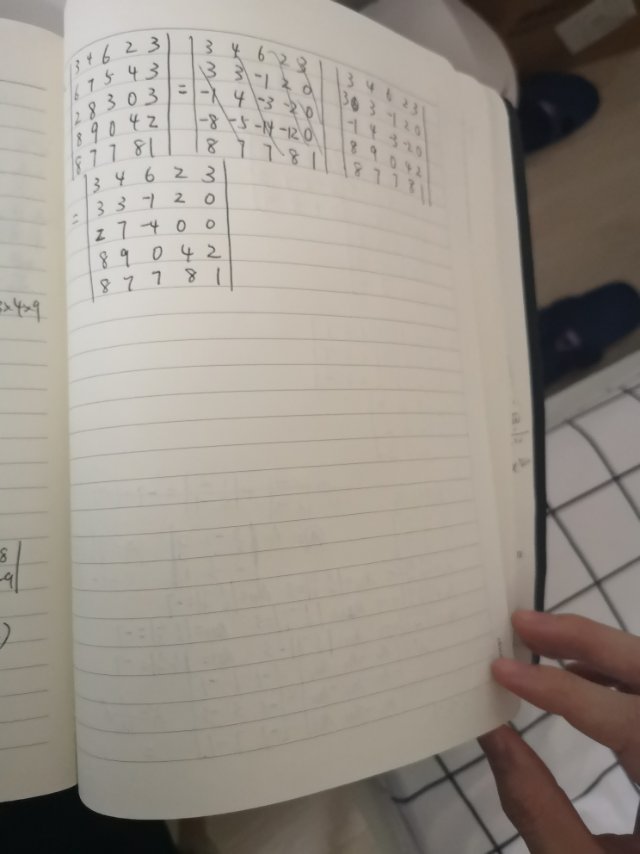 3 4 6 2 3 3 4 6 2 3 3 4 6 2 3
6 7 5 4 3 3 3 -1 2 0 3 3 -1 2 0
2 8 3 0 3 = -1 4 -3 -2 0 -1 4 -3 -2 0
8 9 0 4 2 -8 -5 -14 -12 0 8 9 0 4 2
8 7 7 8 1 8 7 7 8 1 8 7 7 8 1
3 4 6 2 3
3 3 -1 2 0
= 2 7 -4 0 0
8 9 0 4 2
8 7 7 8 1
x4x9
8